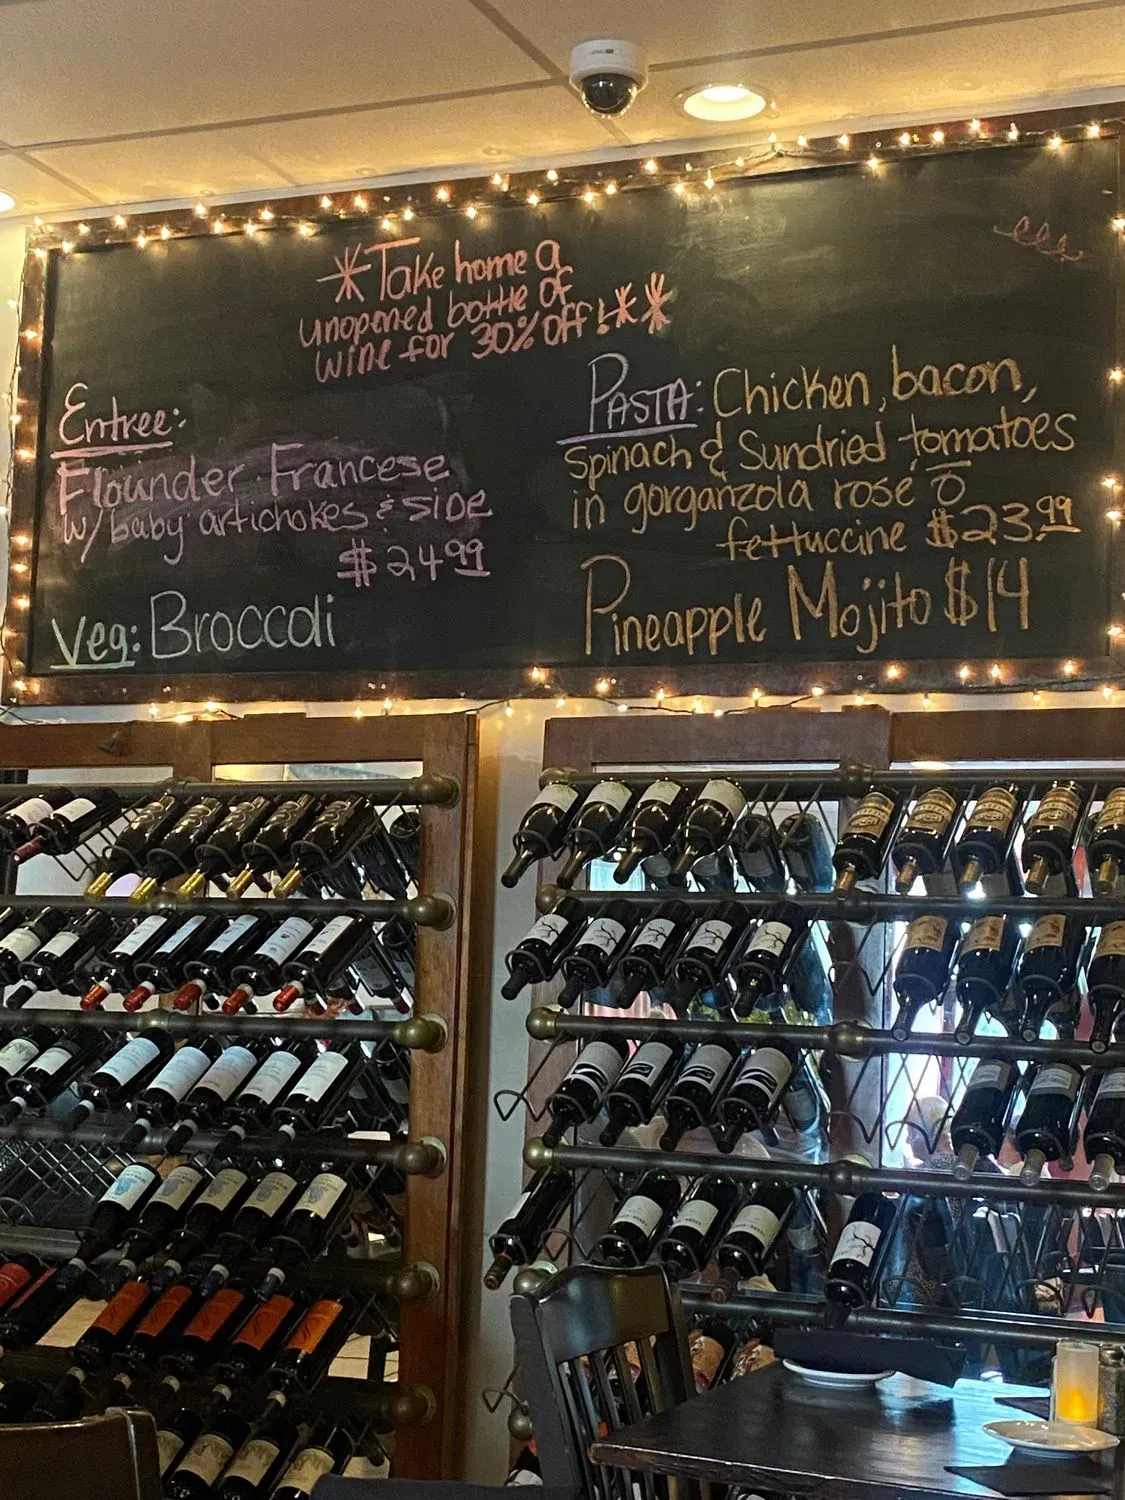 *Take home a
unopened bottle of
wine for 30% off!**
Entree:
Flounder Francese
w/ baby artichokes & SIDE
$24.99
Veg: Broccoli
PASTA: Chicken, bacon,
Spinach & Sundried tomatoes
in gorganzola rosé o
fettuccine $23.99
Pineapple Mojito $14